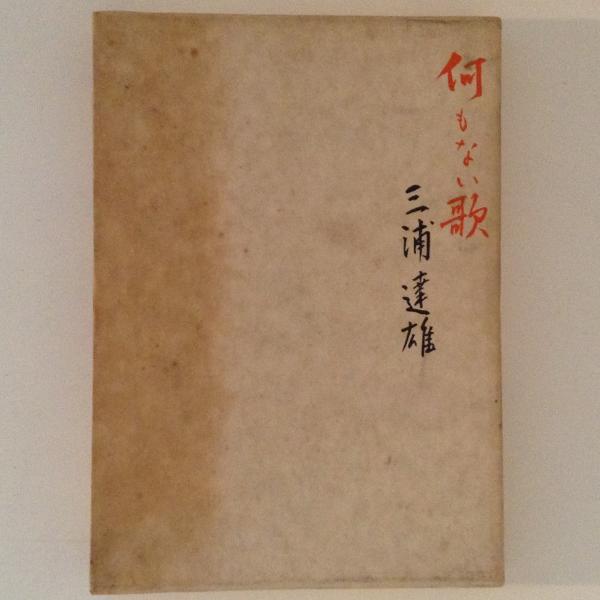 何もない歌
三浦達雄